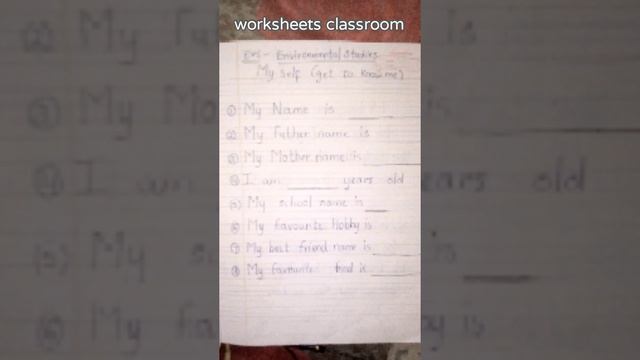 worksheets classroom
EVS - Environmental Studies
My self (get to know me)
① My Name is ______
② My Futher name is
③ My Mother name is ______
④ I am ______ years old
⑤ My school name is ____
⑥ My favourite Hobby is
⑦ My best friend name is ____
⑧ My favourite food is ______